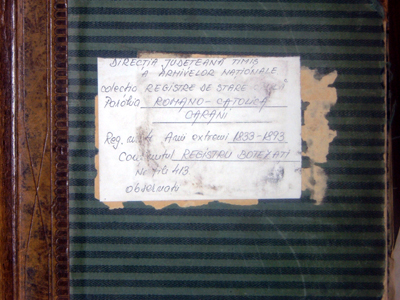 DIRECȚIA JUDEȚEANĂ TIMIȘ
A ARHIVELOR NAȚIONALE
colecția REGISTRE DE STARE CIVILĂ
Parohia ROMANO-CATOLICĂ
Reg. Anii extremi 1833-1893
Conținutul REGISTRU BOTEZAȚI
Nr. file 413
observații